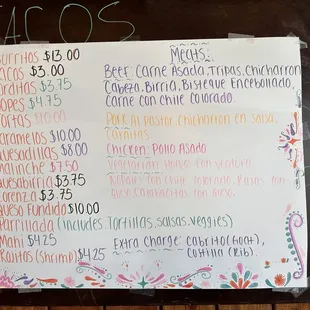 TACOS
Burritos $13.00
Tacos $3.00
Gorditas $3.75
Sopes $4.75
Tortas $10.00
Caramelos $10.00
Quesadillas $8.00
Malinche $7.50
Quesabirria $3.75
Lorenza $3.75
Queso Fundido $10.00
Parrillada (includes Tortillas, Salsas, Veggies)
Mahi $4.25
Rojitos (Shrimp) $4.25
Meats:
Beef: Carne Asada, Tripas, Chicharron
Cabeza, Birria, Bisteque Encebollado,
Carne con Chile Colorado.
Pork: Al Pastor, Chicharron en Salsa,
Carnitas
Chicken: Pollo Asado
Vegetarian:
con Chile Colorado, Rajas con
con Queso.
Extra Charge: Cabrito (Goat),
Costilla (Rib).